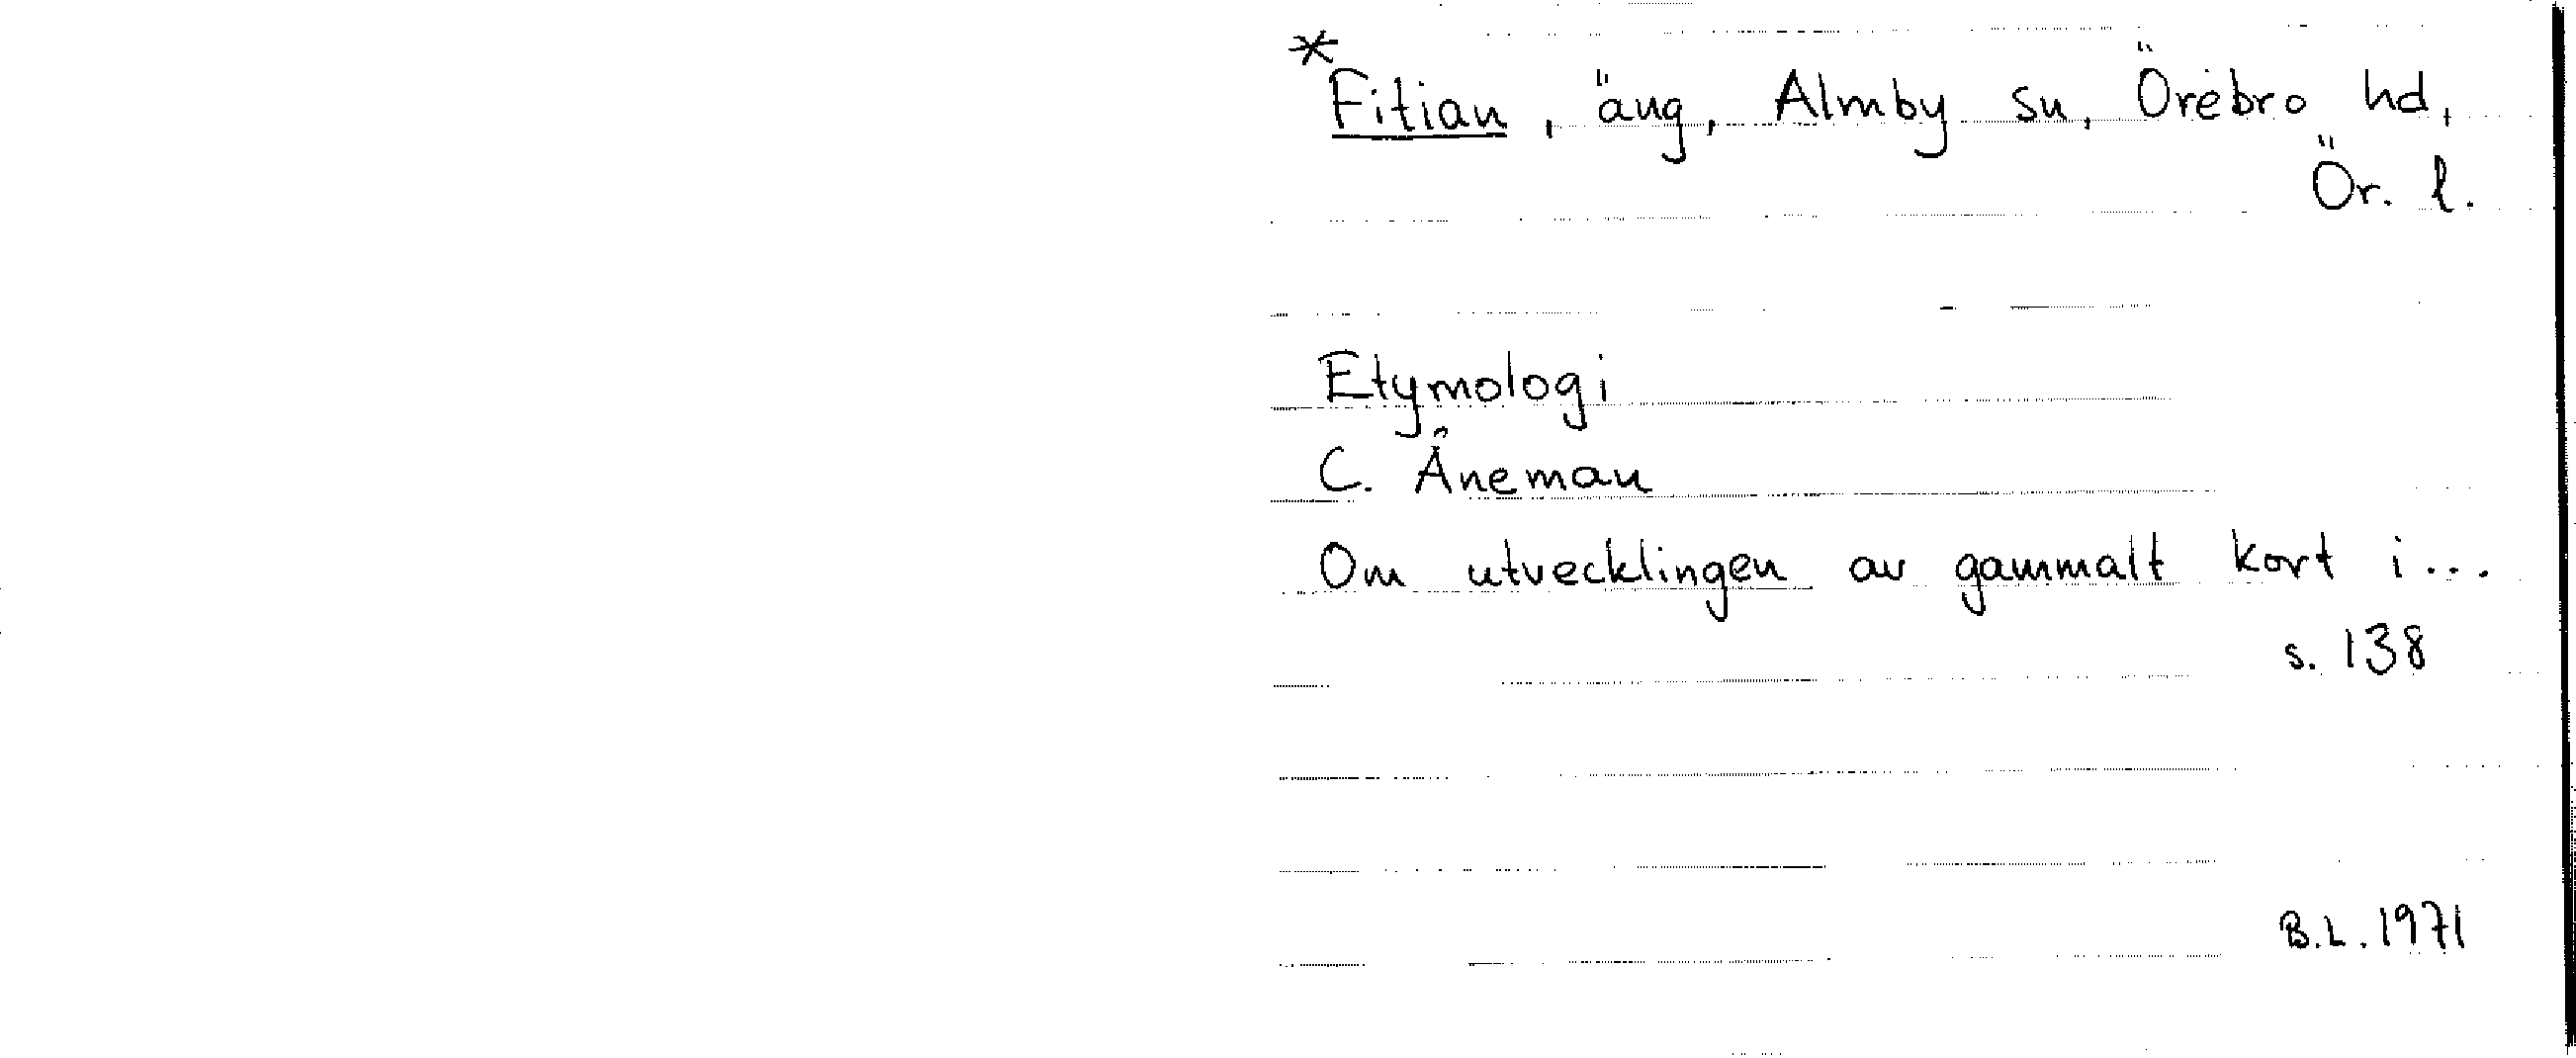 *Fitian, äng, Almby sn, Örebro hd,
Ör. l.
Etymologi
C. Åneman
Om utvecklingen av gammalt kort i...
s. 138
B.L. 1971